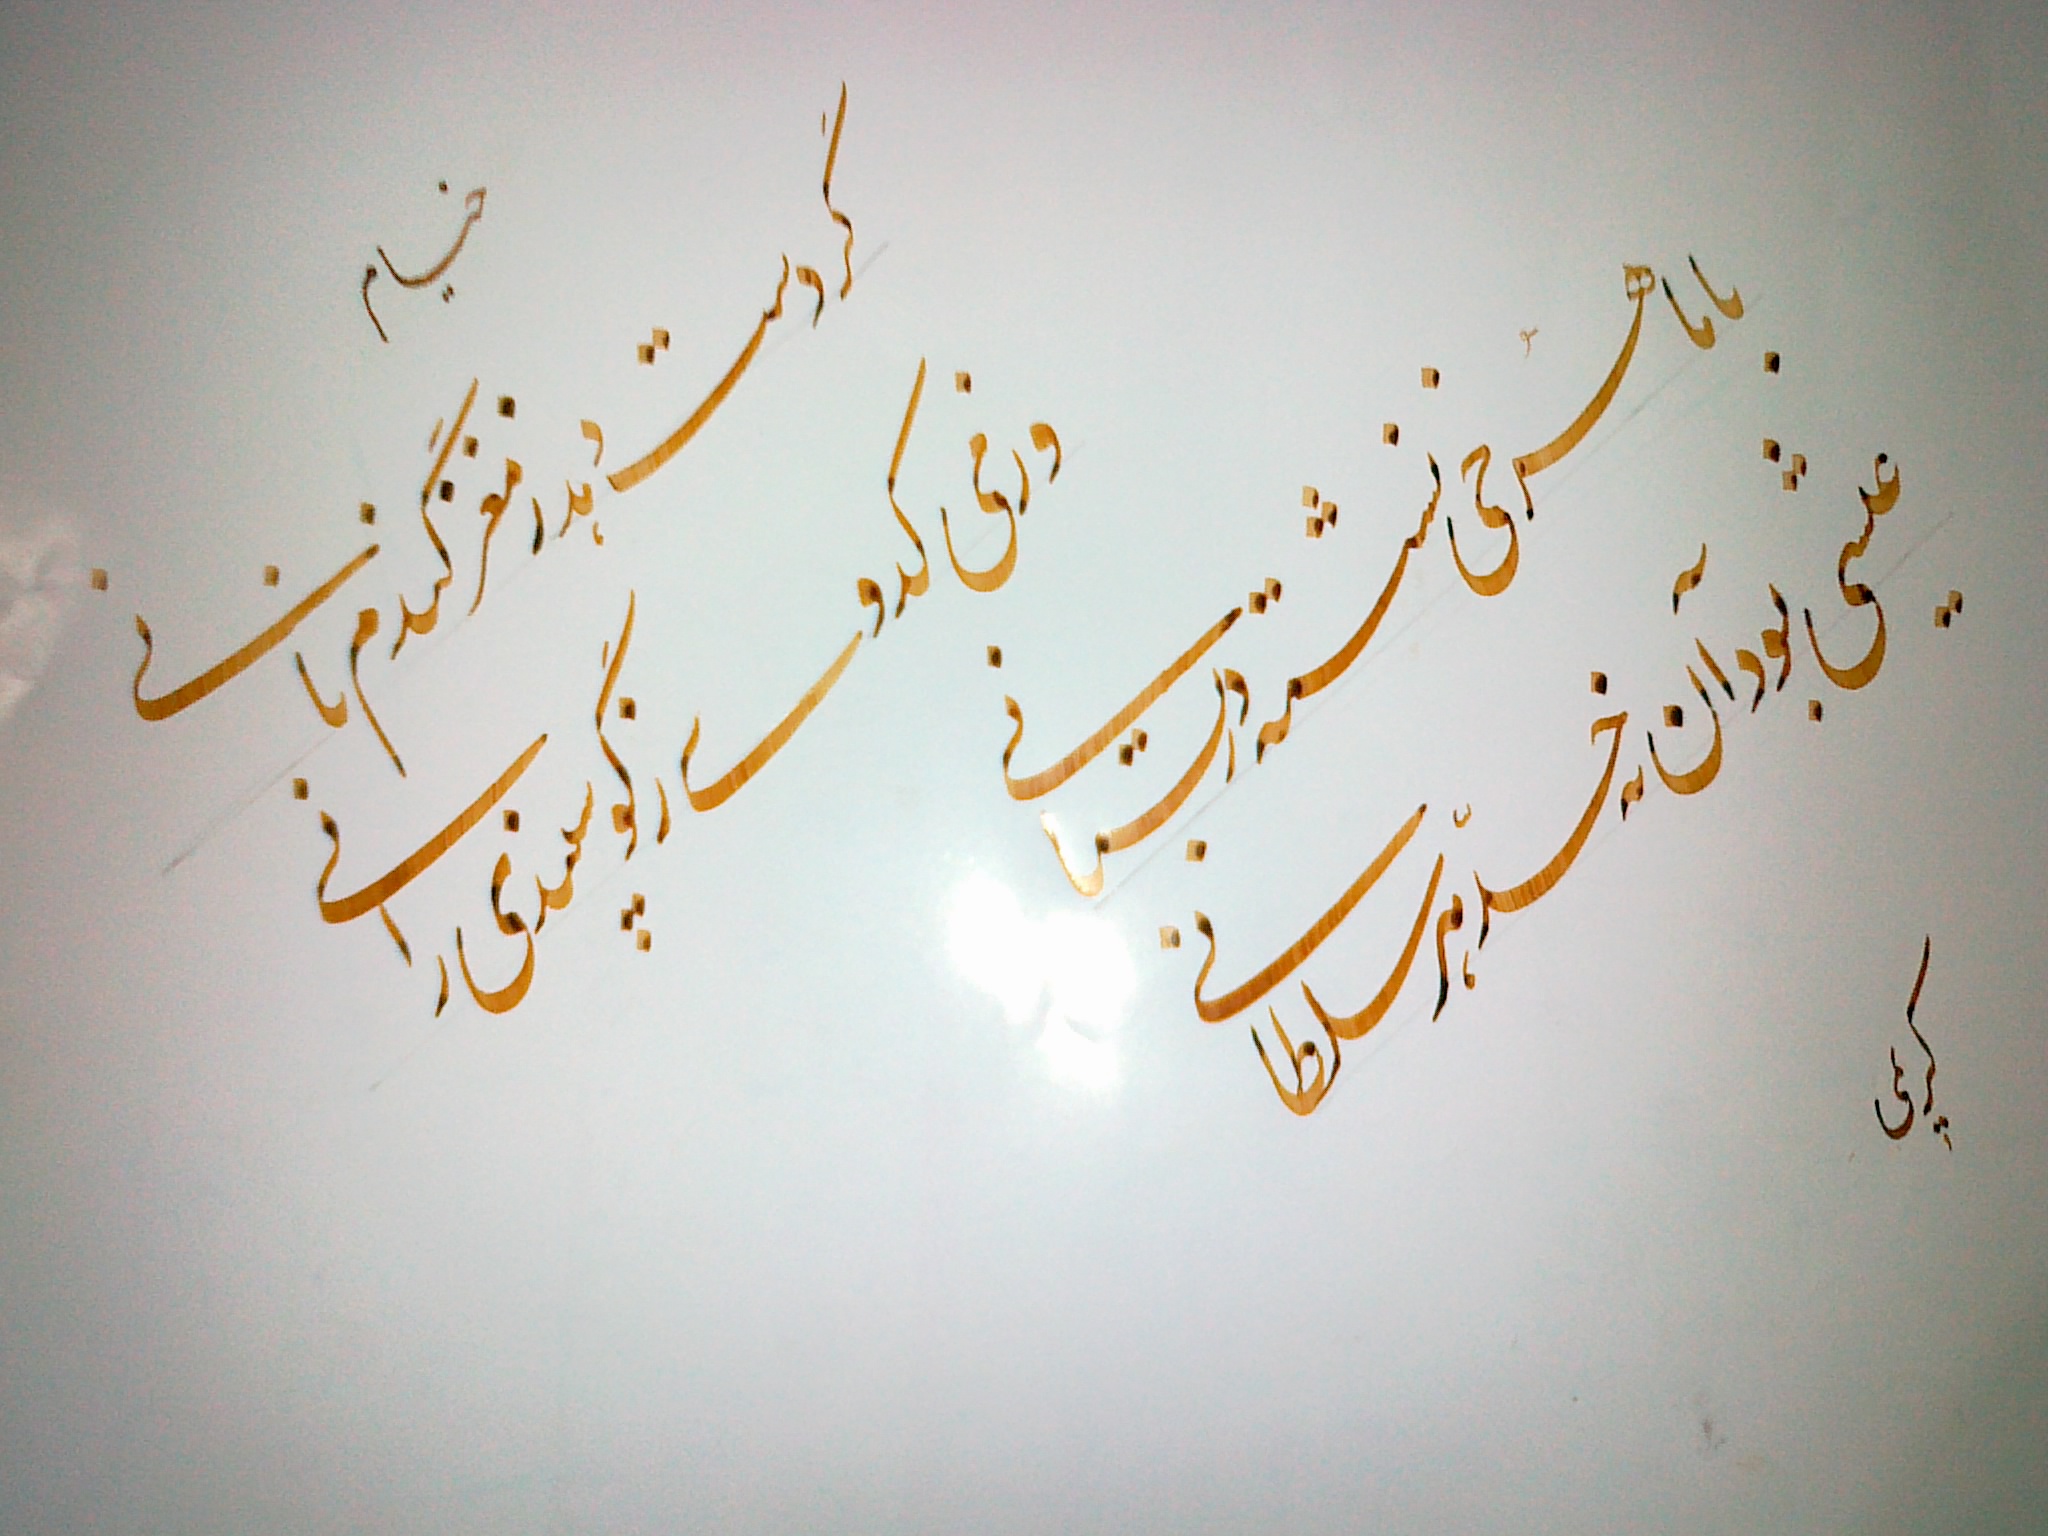 خیام
گر دست دهد ز مغز گندم نانی
وز می کدویی ز گوسفندی رانی
با ماهرخی نشسته در بستانی
عیشی بود آن نه حدّ هر سلطانی
کریمی